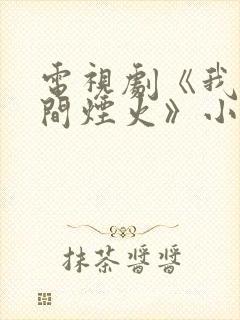 電視劇《我
間煙火》小
抹茶醬醬